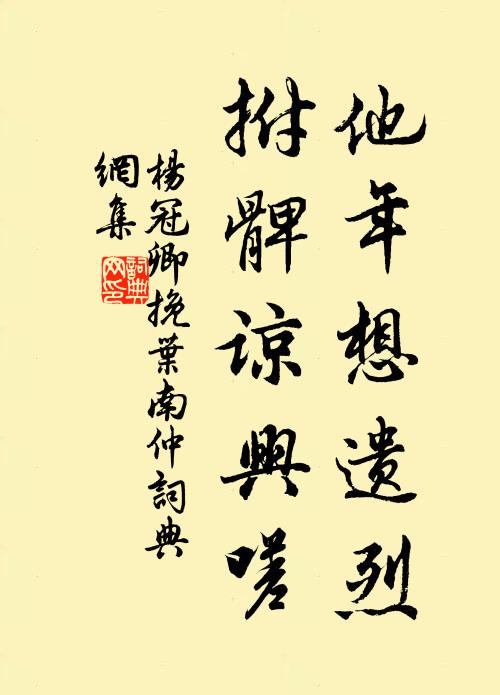 他年想遗烈
拊髀谅興嗟
楊冠卿挽葉南仲詞典
網集
詞典网印